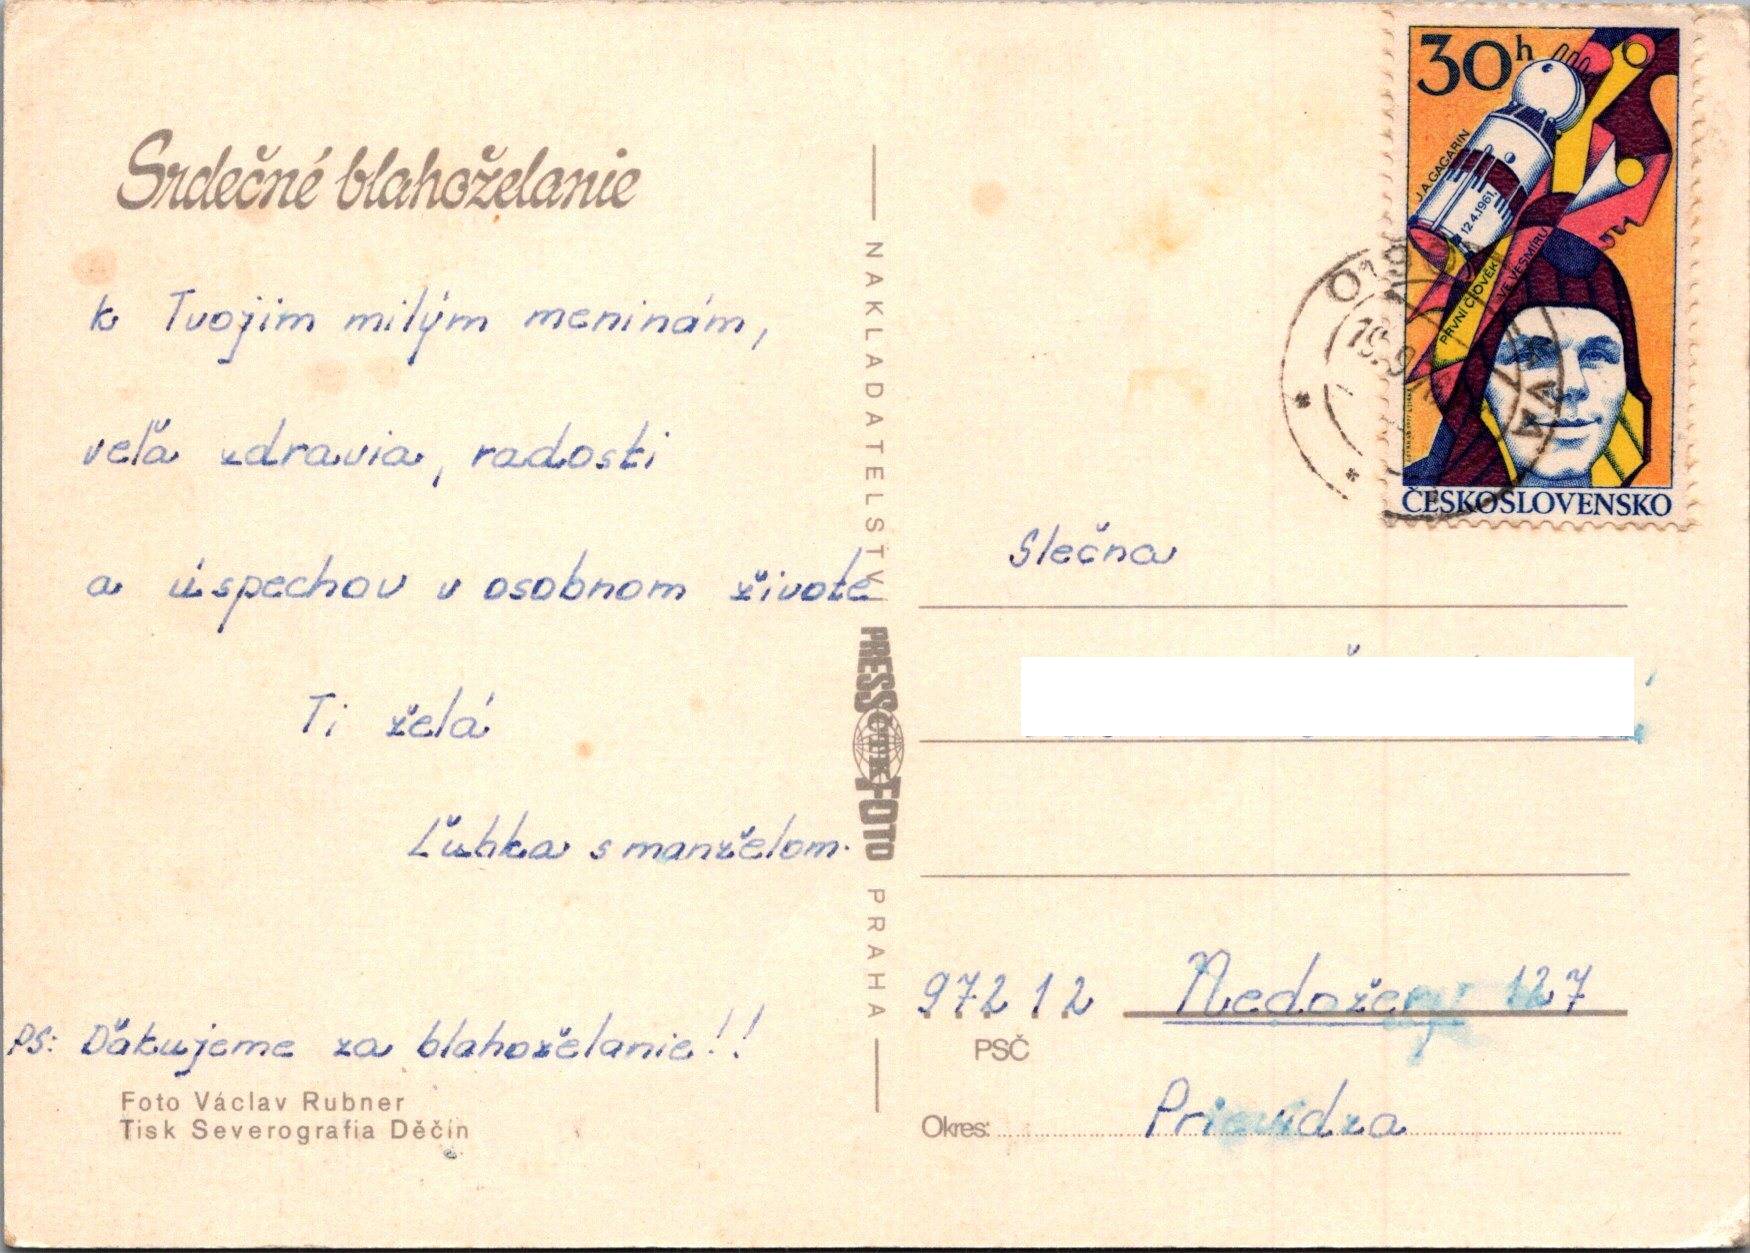 Srdečné blahoželanie
k Tvojim milým meninám,
veľa zdravia, radosti
a úspechov v osobnom živote
Ti želá
Ľuhka s manželom.
PS: Ďakujeme za blahoželanie!!
Foto Václav Rubner
Tisk Severografia Děčín
NAKLADATELSTVÍ
PRESSFOTO
ČTK
PRAHA
30h
J.A.GAGARIN
12.4.1961.
PRVNÍ ČLOVĚK
VE VESMÍRU
ČESKOSLOVENSKO
Slečna
972 12 Nedožery 127
PSČ
Okres: Prievidza